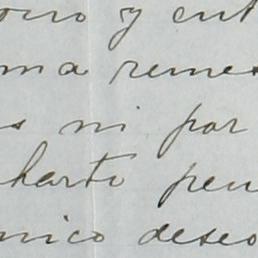 y ent
ma remes
s ni por
harto pen
nico deseo